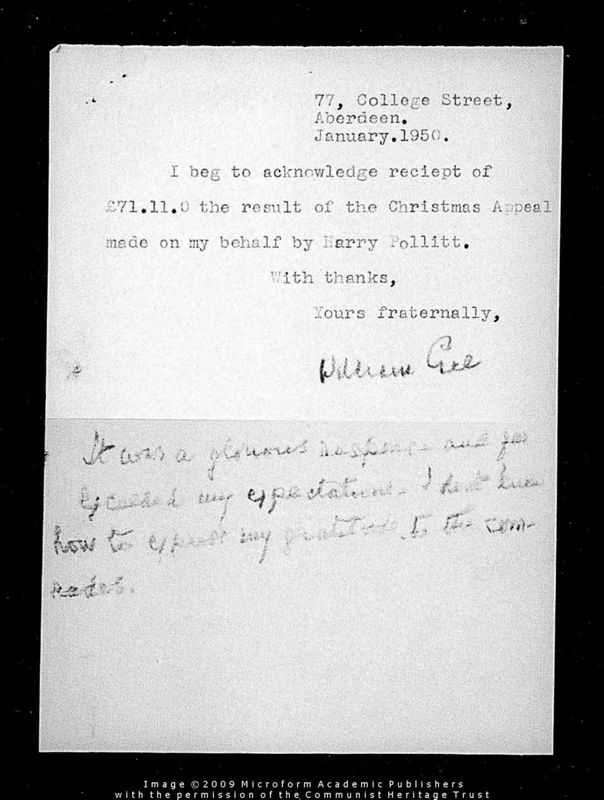 77, College Street,
Aberdeen.
January.1950.
I beg to acknowledge reciept of
£71.11.0 the result of the Christmas Appeal
made on my behalf by Harry Pollitt.
With thanks,
Yours fraternally,
William Gee
It was a glorious response and far
exceeded my expectations. I don't know
how to express my gratitude to the com-
rades.
Image ©2009 Microform Academic Publishers
with the permission of the Communist Heritage Trust